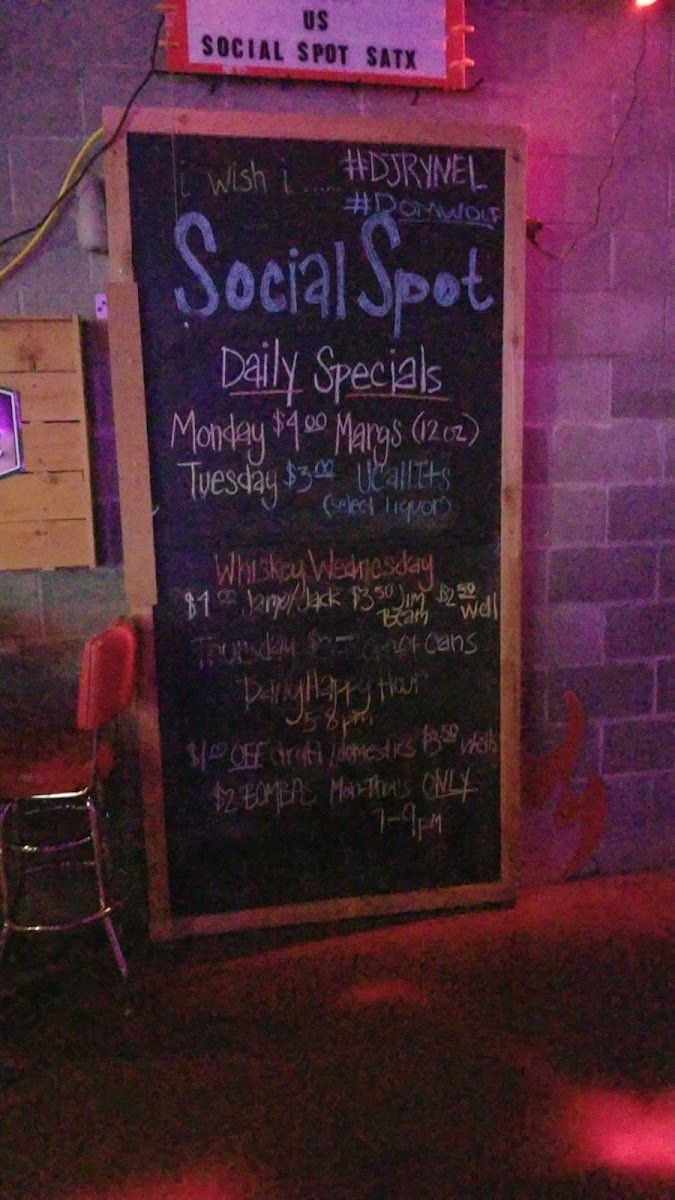 US
SOCIAL SPOT SATX
i wish i ...... #DJRYNEL
#DOMWOLF
Social Spot
Daily Specials
Monday $4.00 Margs (12oz)
Tuesday $3.00 UCallIts
(select liquor)
Whiskey Wednesday
$4.00 Jamo/Jack $3.50 Jim Beam $2.50 Well
Thursday cans
Daily Happy Hour
5-8pm
$1.00 OFF draft/domestics $3.50 wells
$2 BOMBAS Mon-Thurs ONLY
7-9pm